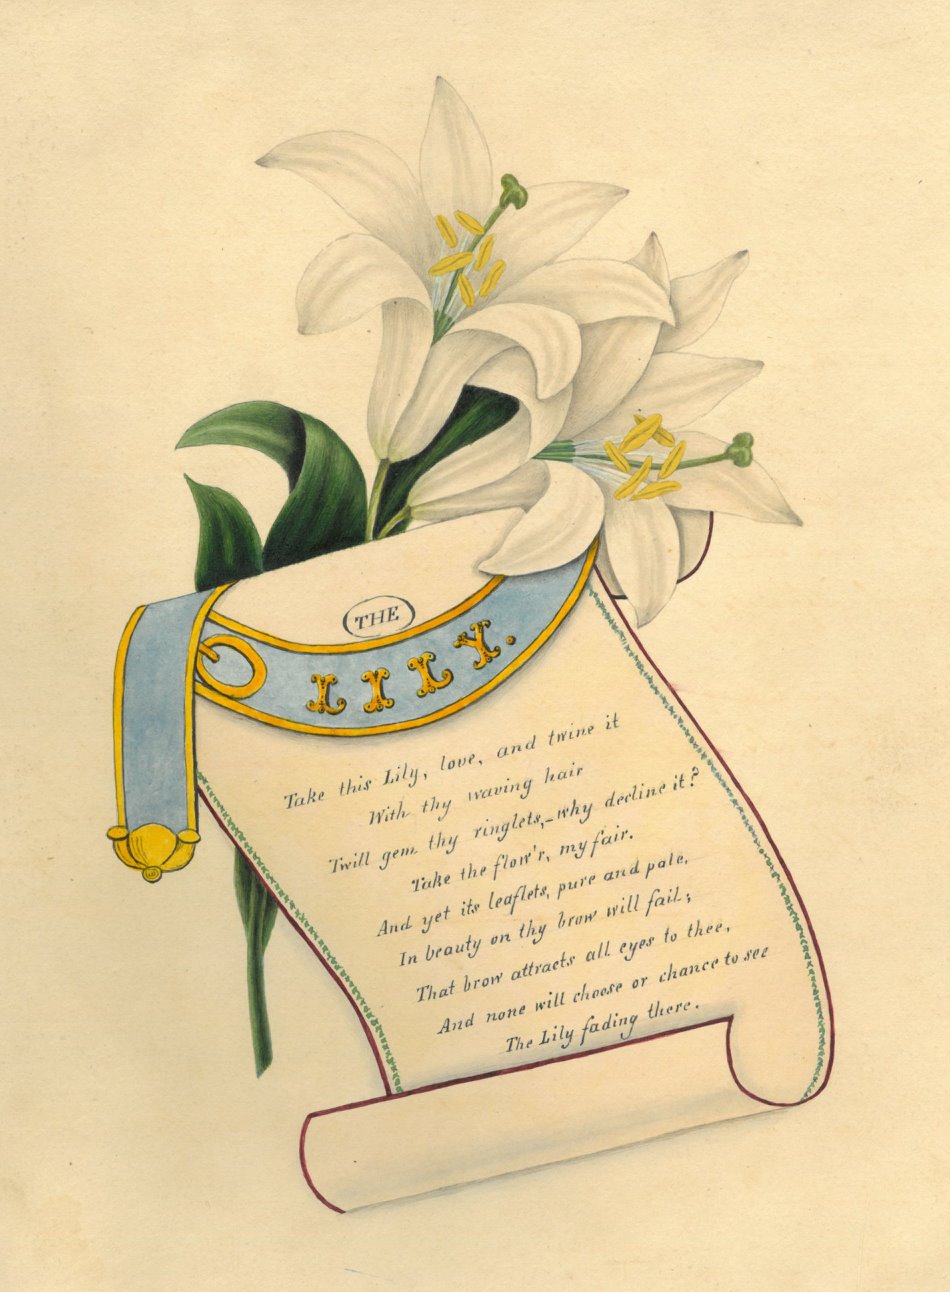 THE
LILY.
Take this Lily, love, and twine it
With thy waving hair
Twill gem thy ringlets,–why decline it?
Take the flow'r, my fair.
And yet its leaflets, pure and pale,
In beauty on thy brow will fail;
That brow attracts all eyes to thee,
And none will choose or chance to see
The Lily fading there.